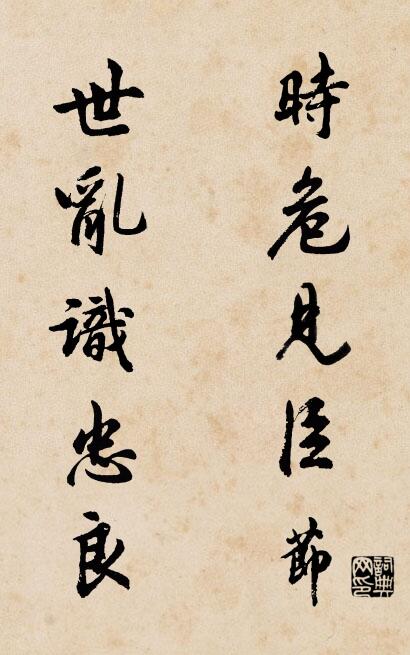 時危見臣節
世亂識忠良
詞典網印